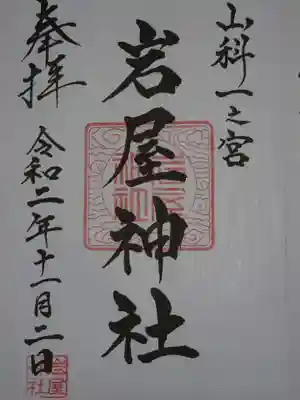 山科一之宮
岩屋神社
奉拝
令和二年十一月二日
岩屋
社